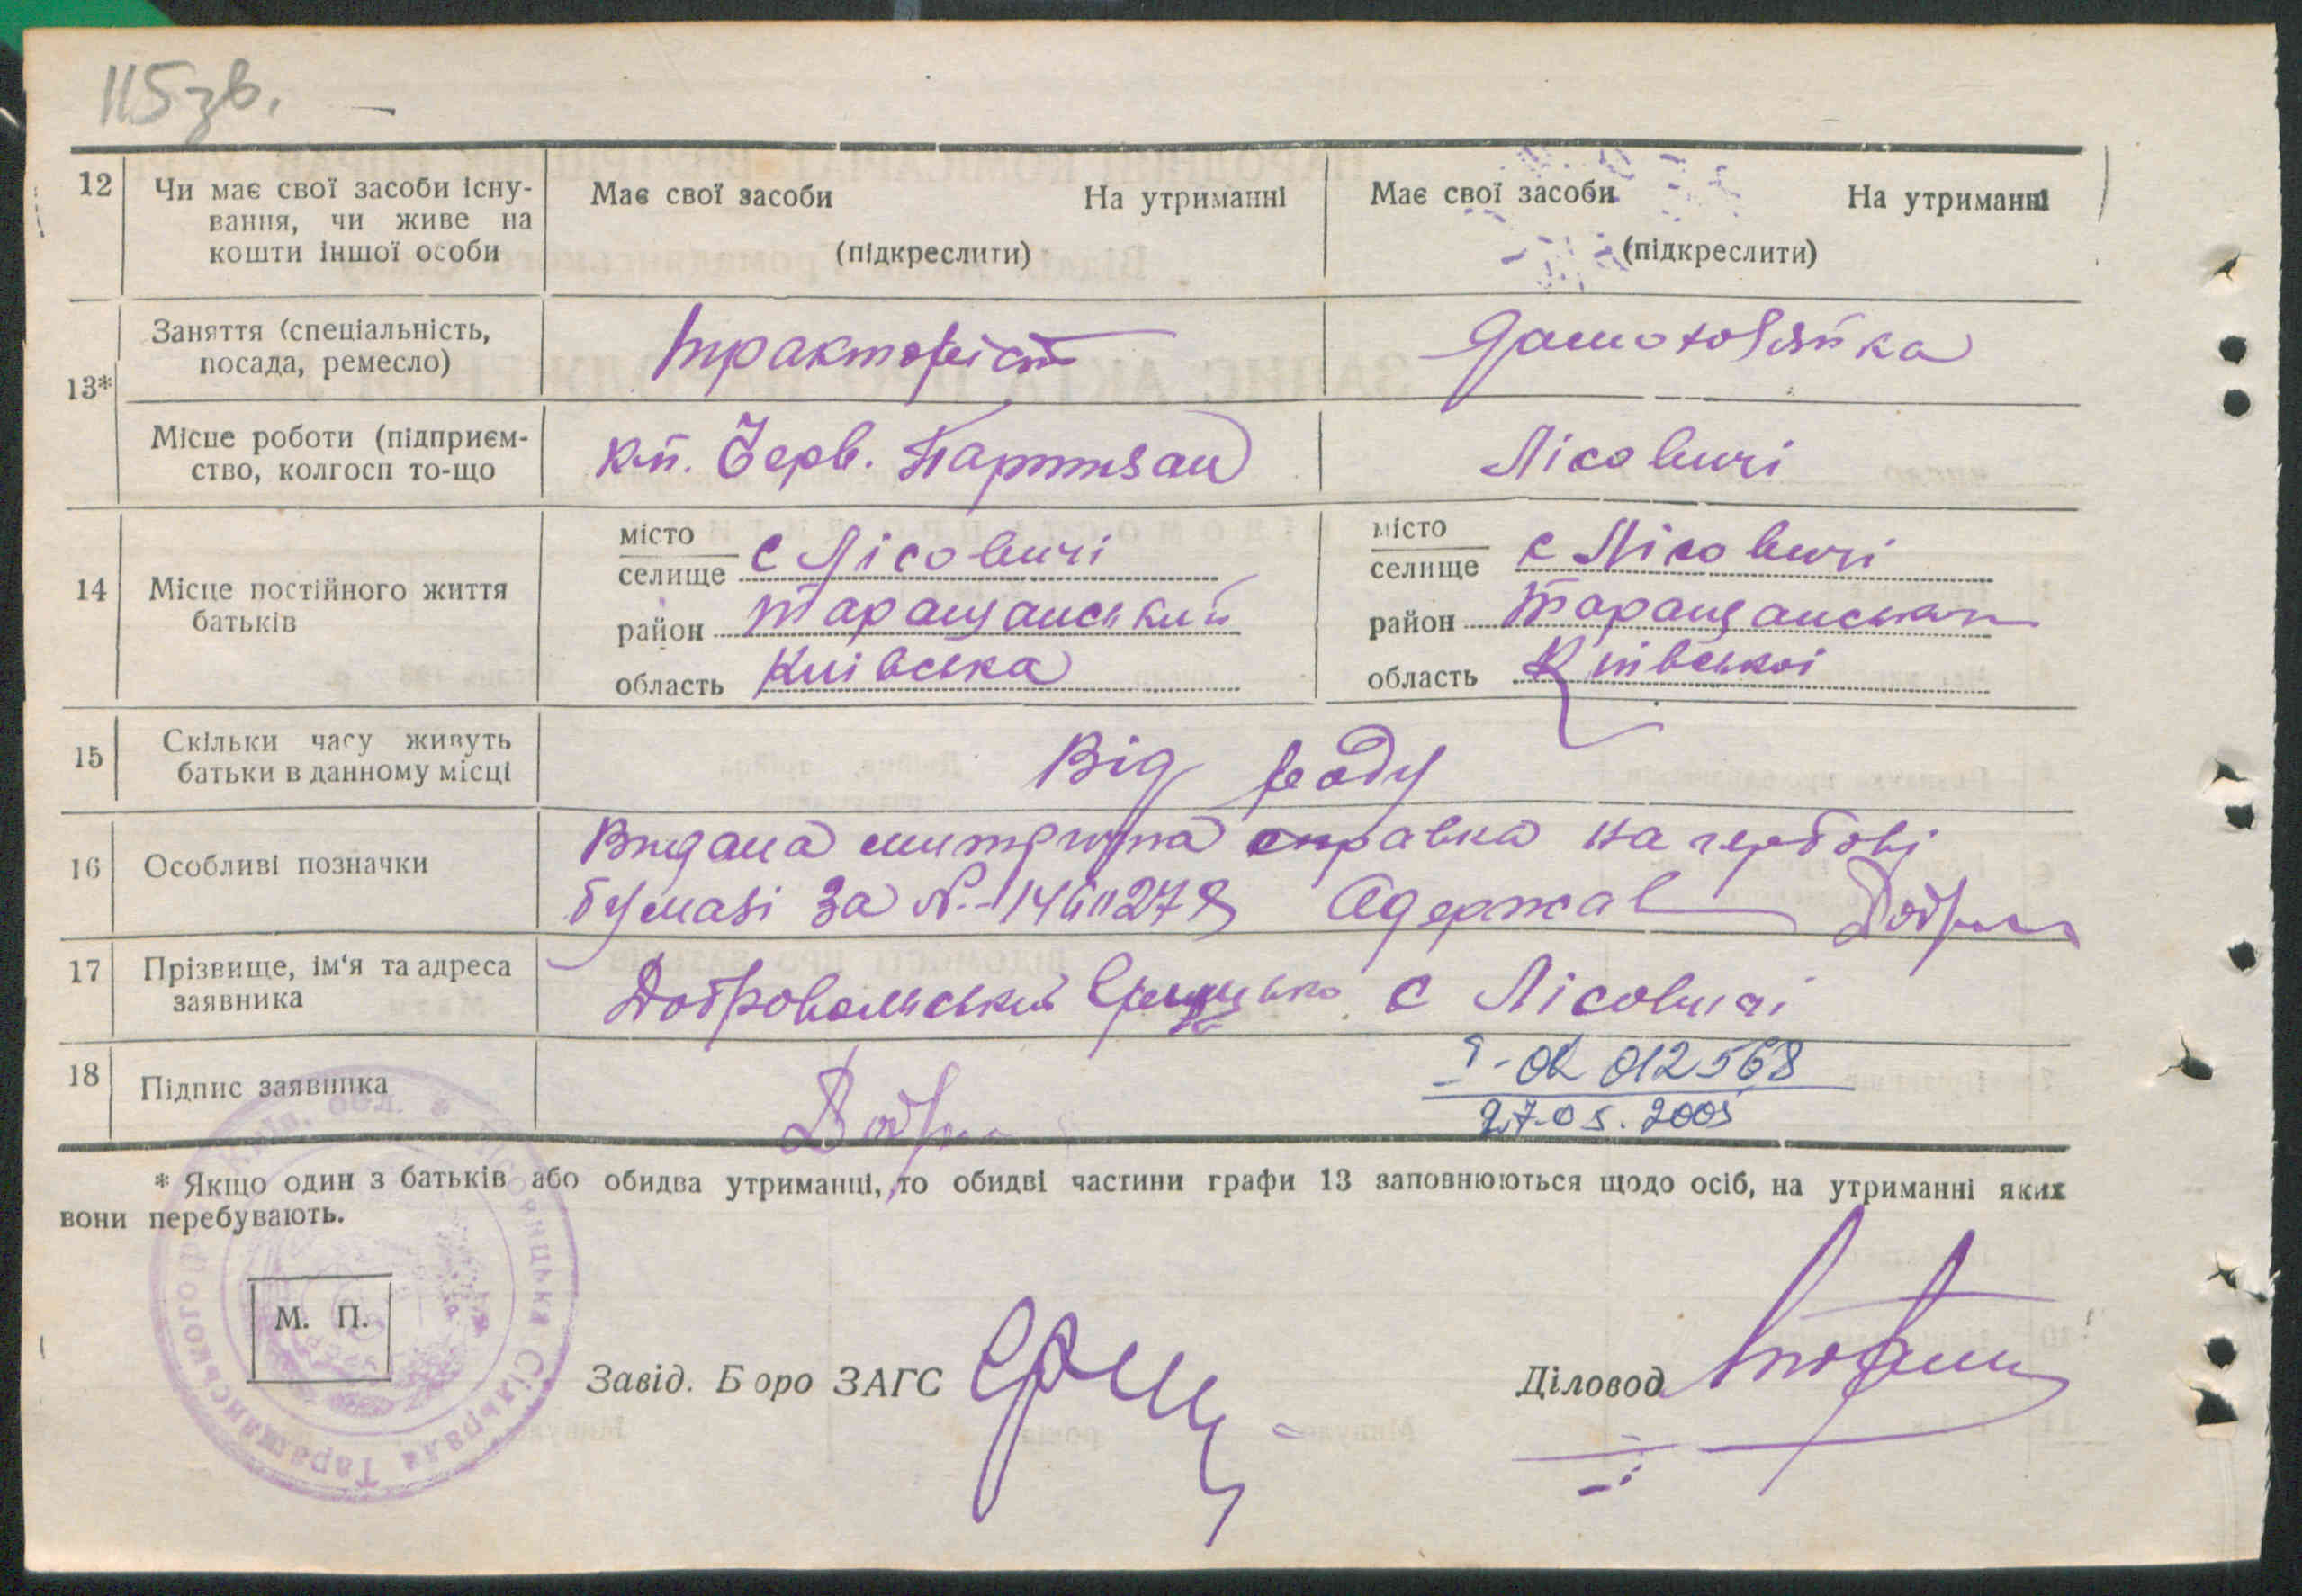 115 зв.
12 Чи має свої засоби існу- Має свої засоби На утриманні Має свої засоби На утриманні
вання, чи живе на
кошти іншої особи (підкреслити) (підкреслити)
Заняття (спеціальність, Тракторіст Домохозяйка
посада, ремесло)
13*
Місце роботи (підприєм- к-п. Черв. Партизан Лісовичі
ство, колгосп то-що
14 Місце постійного життя
батьків
місто
селище с Лісовичі
район Таращанський
область Київська
місто
селище с Лісовичі
район Таращанський
область Київської
15 Скільки часу живуть Від роду
батьки в данному місці
16 Особливі позначки Видана справка на гербові
бумазі за №- Одержав
17 Прізвище, ім'я та адреса Добровольський с Лісовичі
заявника
18 Підпис заявника
І-ОК 012568
27.05.2005
* Якщо один з батьків або обидва утриманці, то обидві частини графи 13 заповнюються щодо осіб, на утриманні яких
вони перебувають.
М. П.
Завід. Бюро ЗАГС
Діловод
Сільрада Таращанського